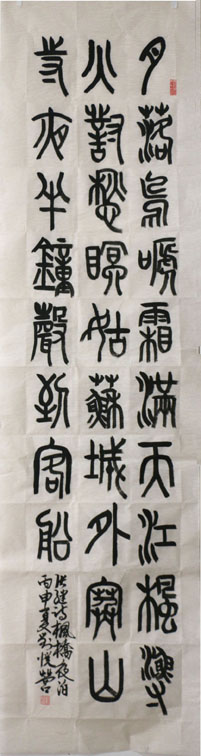 月落烏啼霜滿天江楓漁
火對愁眠姑蘇城外寒山
寺夜半鐘聲到客船
張繼詩楓橋夜泊
丙申夏